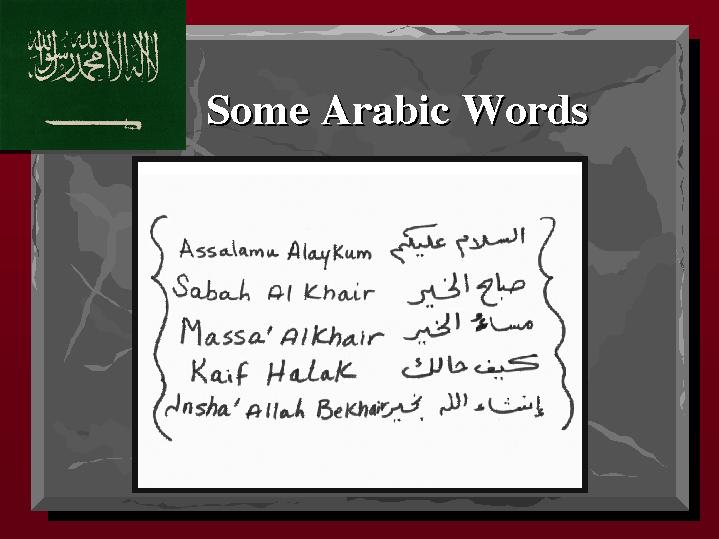 لا إله إلا الله محمد رسول الله
Some Arabic Words
Assalamu Alaykum السلام عليكم
Sabah Al Khair صباح الخير
Massa' AlKhair مساء الخير
Kaif Halak كيف حالك
Insha' Allah Bekhair إنشاء الله بخير